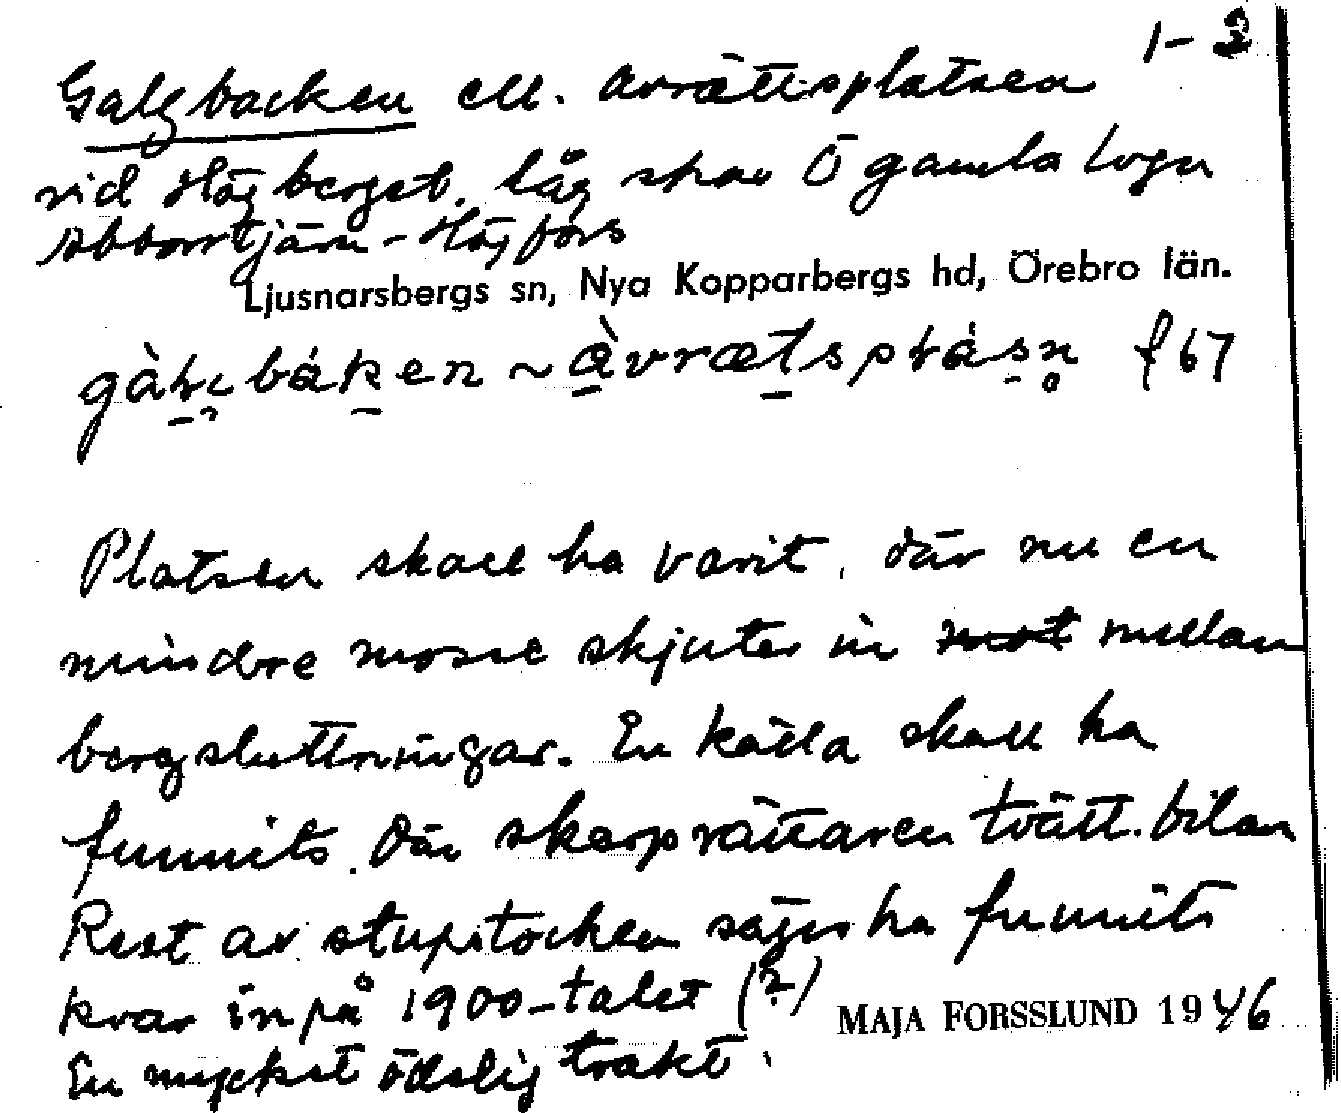 1-3
Galgbacken ell. avrättsplatsen
vid Högberget. låg strax Ö gamla vägen
Abborrtjärn - Högfors
Ljusnarsbergs sn, Nya Kopparbergs hd, Örebro län.
f 67
Platsen skall ha varit, där nu en
mindre mosse skjuter in mot mellan
bergsluttningar. En källa skall ha
funnits. Där skarprättaren tvätt. bilan
Rest av stupstocken säges ha funnits
kvar inpå 1900-talet (?)
MAJA FORSSLUND 1946
En mycket ödslig trakt.